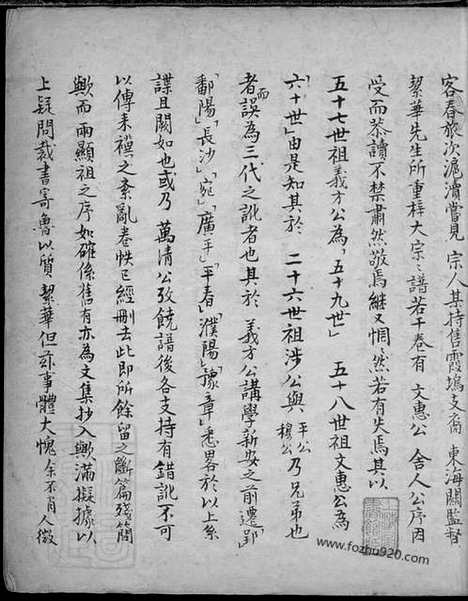 客春旅次滬瀆嘗見 宗人某持售霞塢支裔 東海關監督
絜華先生所重梓大宗之譜若干卷有 文惠公 舍人公序因
受而恭讀不禁肅然敬焉繼又惘然若有失焉其以
五十七世祖義方公為「五十九世」 五十八世祖文惠公為
「六十世」由是知其於 二十六世祖涉公與 平公 穆公 乃兄弟也
者而誤為三代之訛者也其於 義方公講學新安之前遷郢」
「鄱陽」「長沙」「宛」「廣平」「平春」「濮陽」「豫章」悉畧於以上系
諜且闕如也或乃 萬清公攷饒譜後各支持有錯訛不可
以傳来禩之紊亂卷帙已經刪去此即所餘留之斷篇殘簡
歟而兩顯祖之序如確係舊有亦為文集抄入歟滿擬據以
上疑問裁書寄魯以質 絜華但茲事體大愧 余不肖人微
www.fozhu920.com